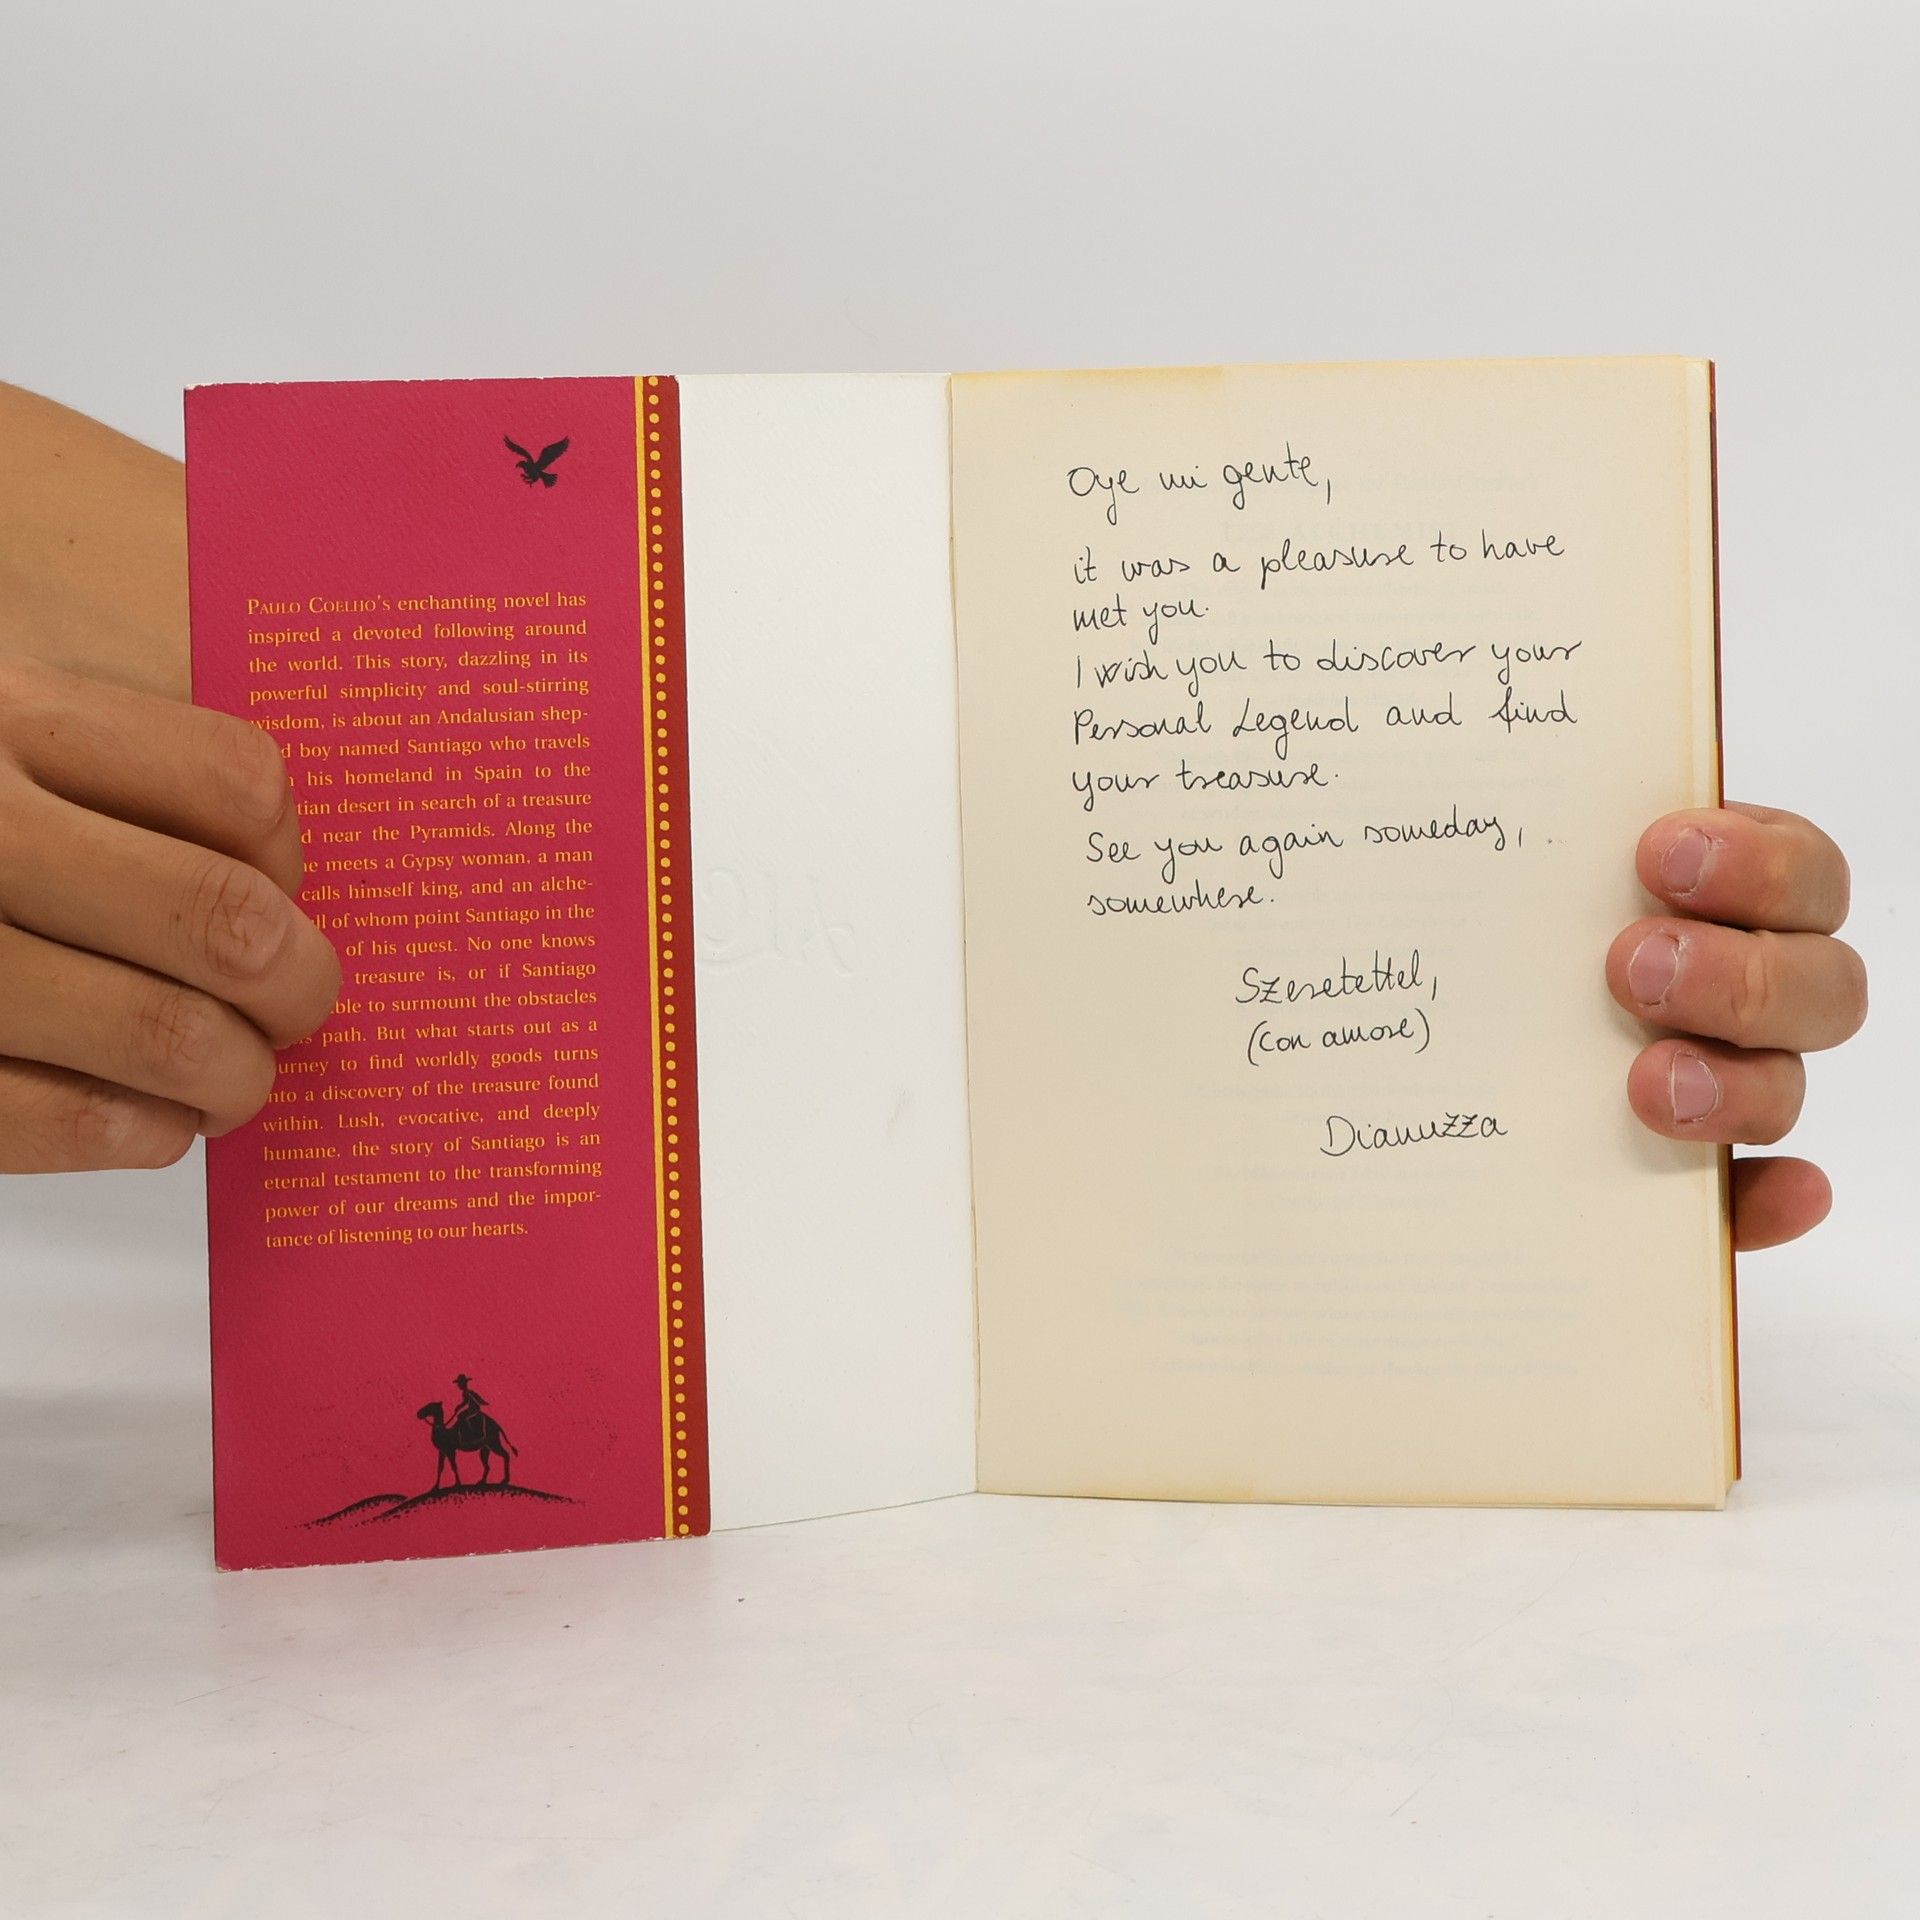 PAULO COELHO'S enchanting novel has
inspired a devoted following around
the world. This story, dazzling in its
powerful simplicity and soul-stirring
wisdom, is about an Andalusian shep-
d boy named Santiago who travels
his homeland in Spain to the
tian desert in search of a treasure
d near the Pyramids. Along the
he meets a Gypsy woman, a man
calls himself king, and an alche-
ll of whom point Santiago in the
of his quest. No one knows
treasure is, or if Santiago
ble to surmount the obstacles
path. But what starts out as a
urney to find worldly goods turns
nto a discovery of the treasure found
within. Lush, evocative, and deeply
humane, the story of Santiago is an
eternal testament to the transforming
power of our dreams and the impor-
tance of listening to our hearts.
Oye mi gente,
it was a pleasure to have
met you.
I wish you to discover your
Personal Legend and find
your treasure.
See you again someday,
somewhere.
Szeretettel,
(con amore)
Dianuzza